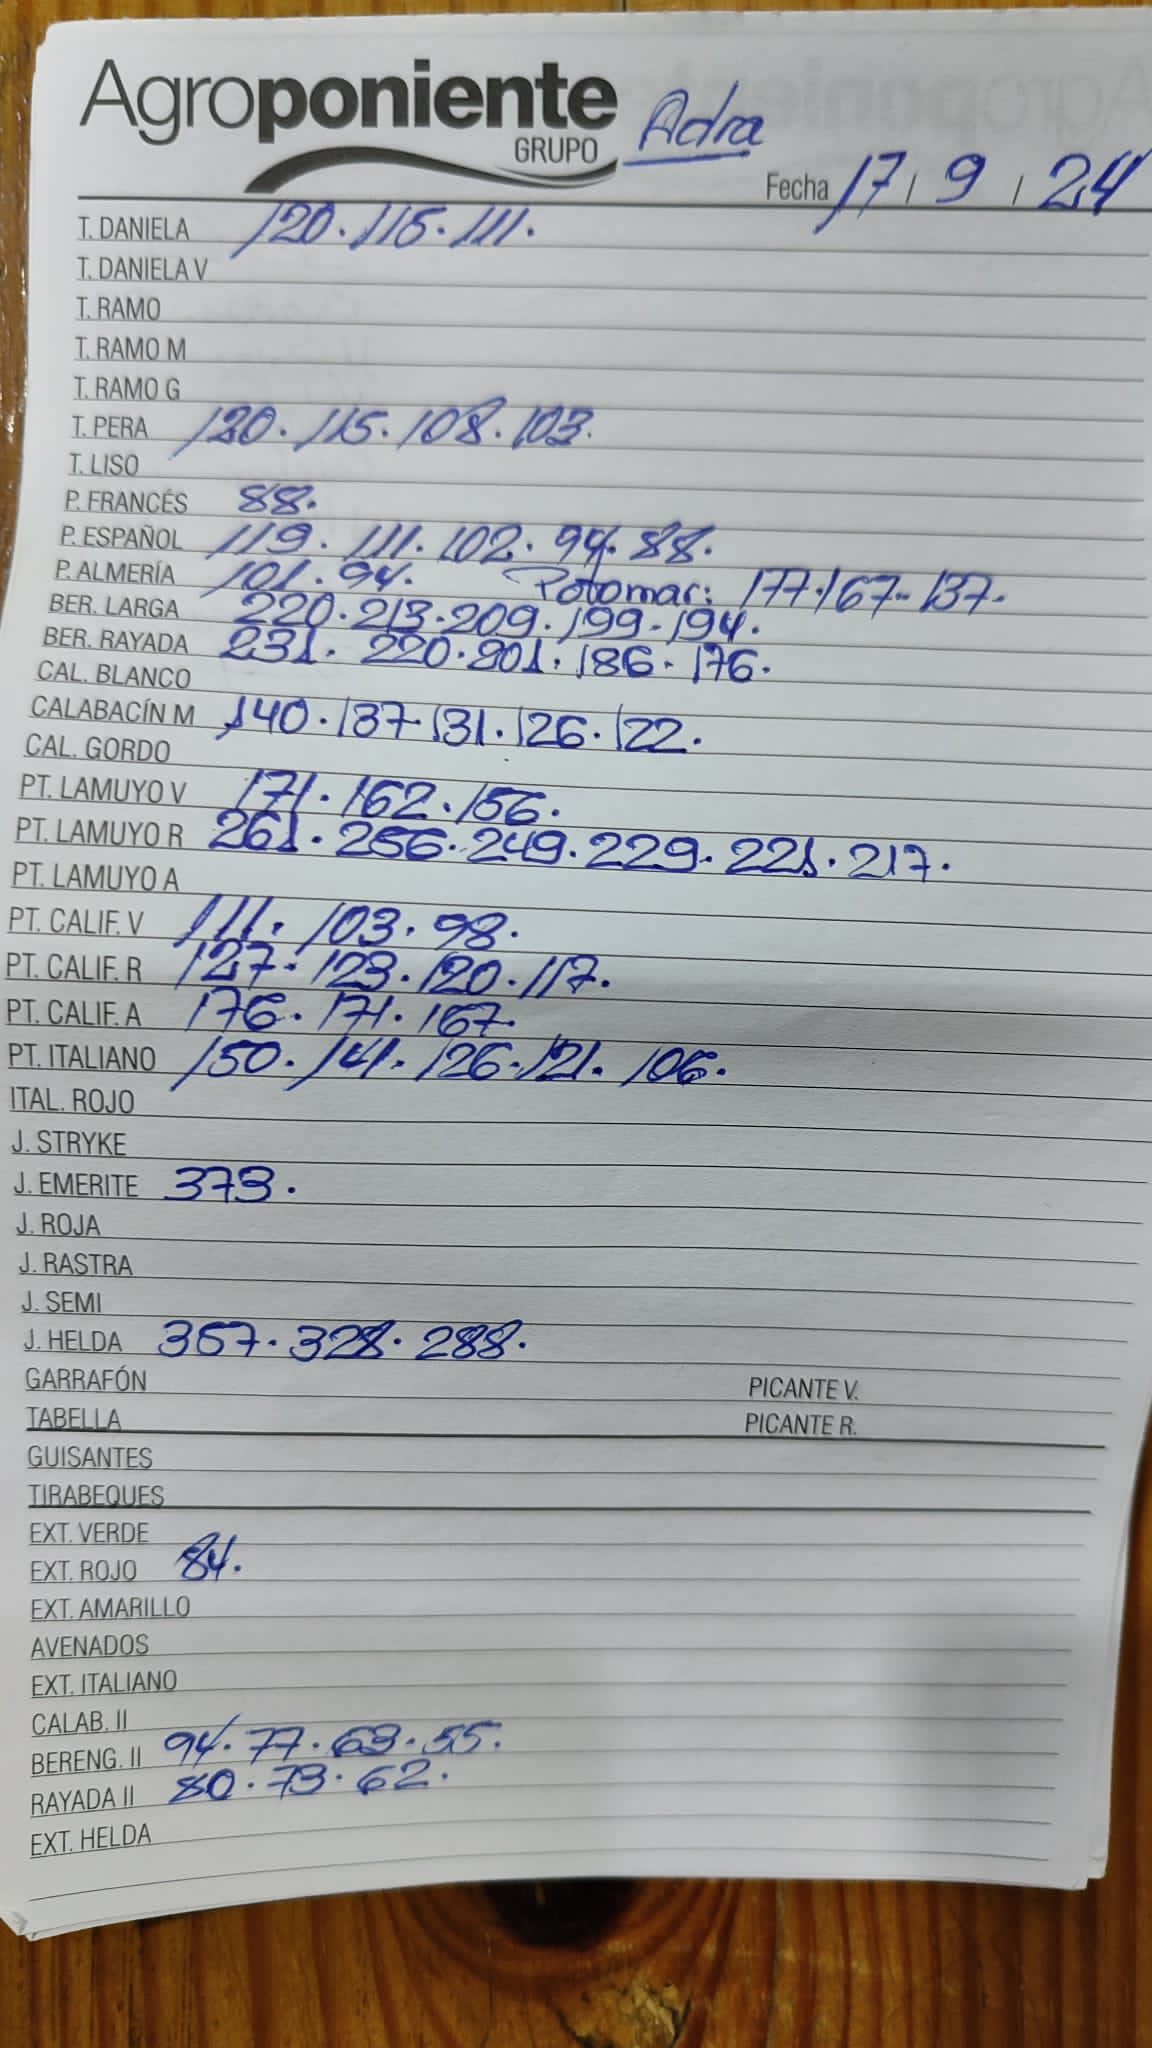 Agroponiente
GRUPO
Adra
Fecha 17 / 9 / 24
T. DANIELA 120. 115. 111.
T. DANIELA V
T. RAMO
T. RAMO M
T. RAMO G
T. PERA 120. 115. 108. 103.
T. LISO
P. FRANCÉS 88.
P. ESPAÑOL 119. 111. 102. 94. 88.
P. ALMERÍA 101. 94. Potomac: 177. 167. 137.
BER. LARGA 220. 213. 209. 199. 194.
BER. RAYADA 231. 220. 201. 186. 176.
CAL. BLANCO
CALABACÍN M 140. 137. 131. 126. 122.
CAL. GORDO
PT. LAMUYO V 171. 162. 156.
PT. LAMUYO R 261. 256. 249. 229. 221. 217.
PT. LAMUYO A
PT. CALIF. V 111. 103. 98.
PT. CALIF. R 127. 123. 120. 117.
PT. CALIF. A 176. 171. 167.
PT. ITALIANO 150. 141. 126. 121. 106.
ITAL. ROJO
J. STRYKE
J. EMERITE 373.
J. ROJA
J. RASTRA
J. SEMI
J. HELDA 367. 328. 288.
GARRAFÓN PICANTE V.
TABELLA PICANTE R.
GUISANTES
TIRABEQUES
EXT. VERDE
EXT. ROJO 84.
EXT. AMARILLO
AVENADOS
EXT. ITALIANO
CALAB. II
BERENG. II 94. 77. 63. 55.
RAYADA II 80. 73. 62.
EXT. HELDA